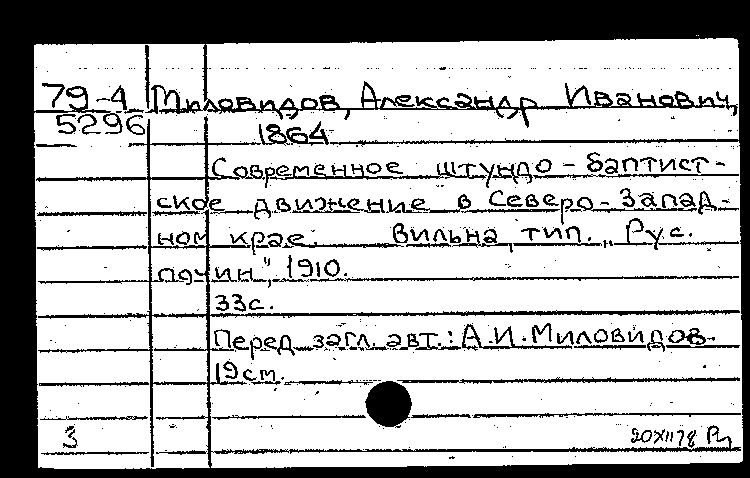 79-4 Миловидов, Александр Иванович,
5296 1864
Современное штундо-баптист-
ское движение в Северо-Запад-
ном крае. Вильна, тип. „Рус.
почин", 1910.
33с.
Перед загл. авт.: А.И.Миловидов.
19см.
3 20XII78